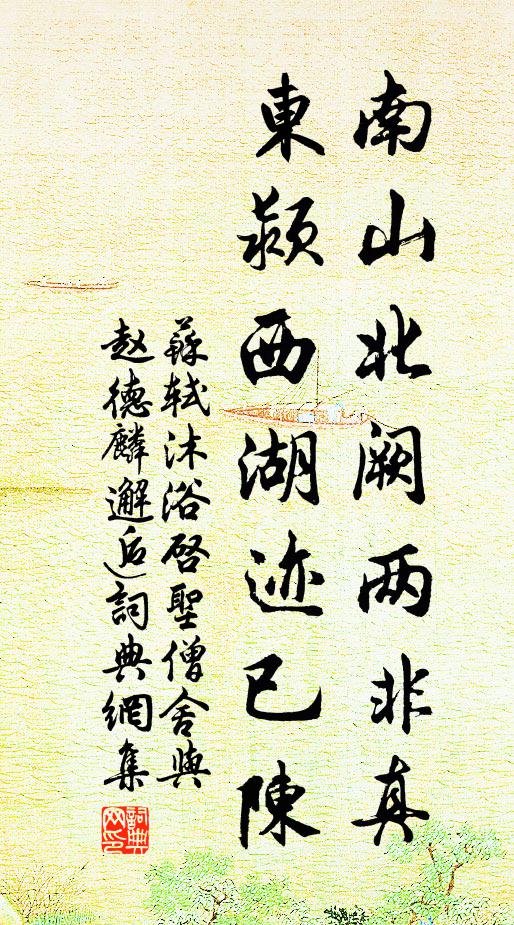 南山北阙两非真
東颍西湖迹已陳
蘇轼沐浴啓聖僧舍與
赵德麟邂逅詞典網集
詞典网印